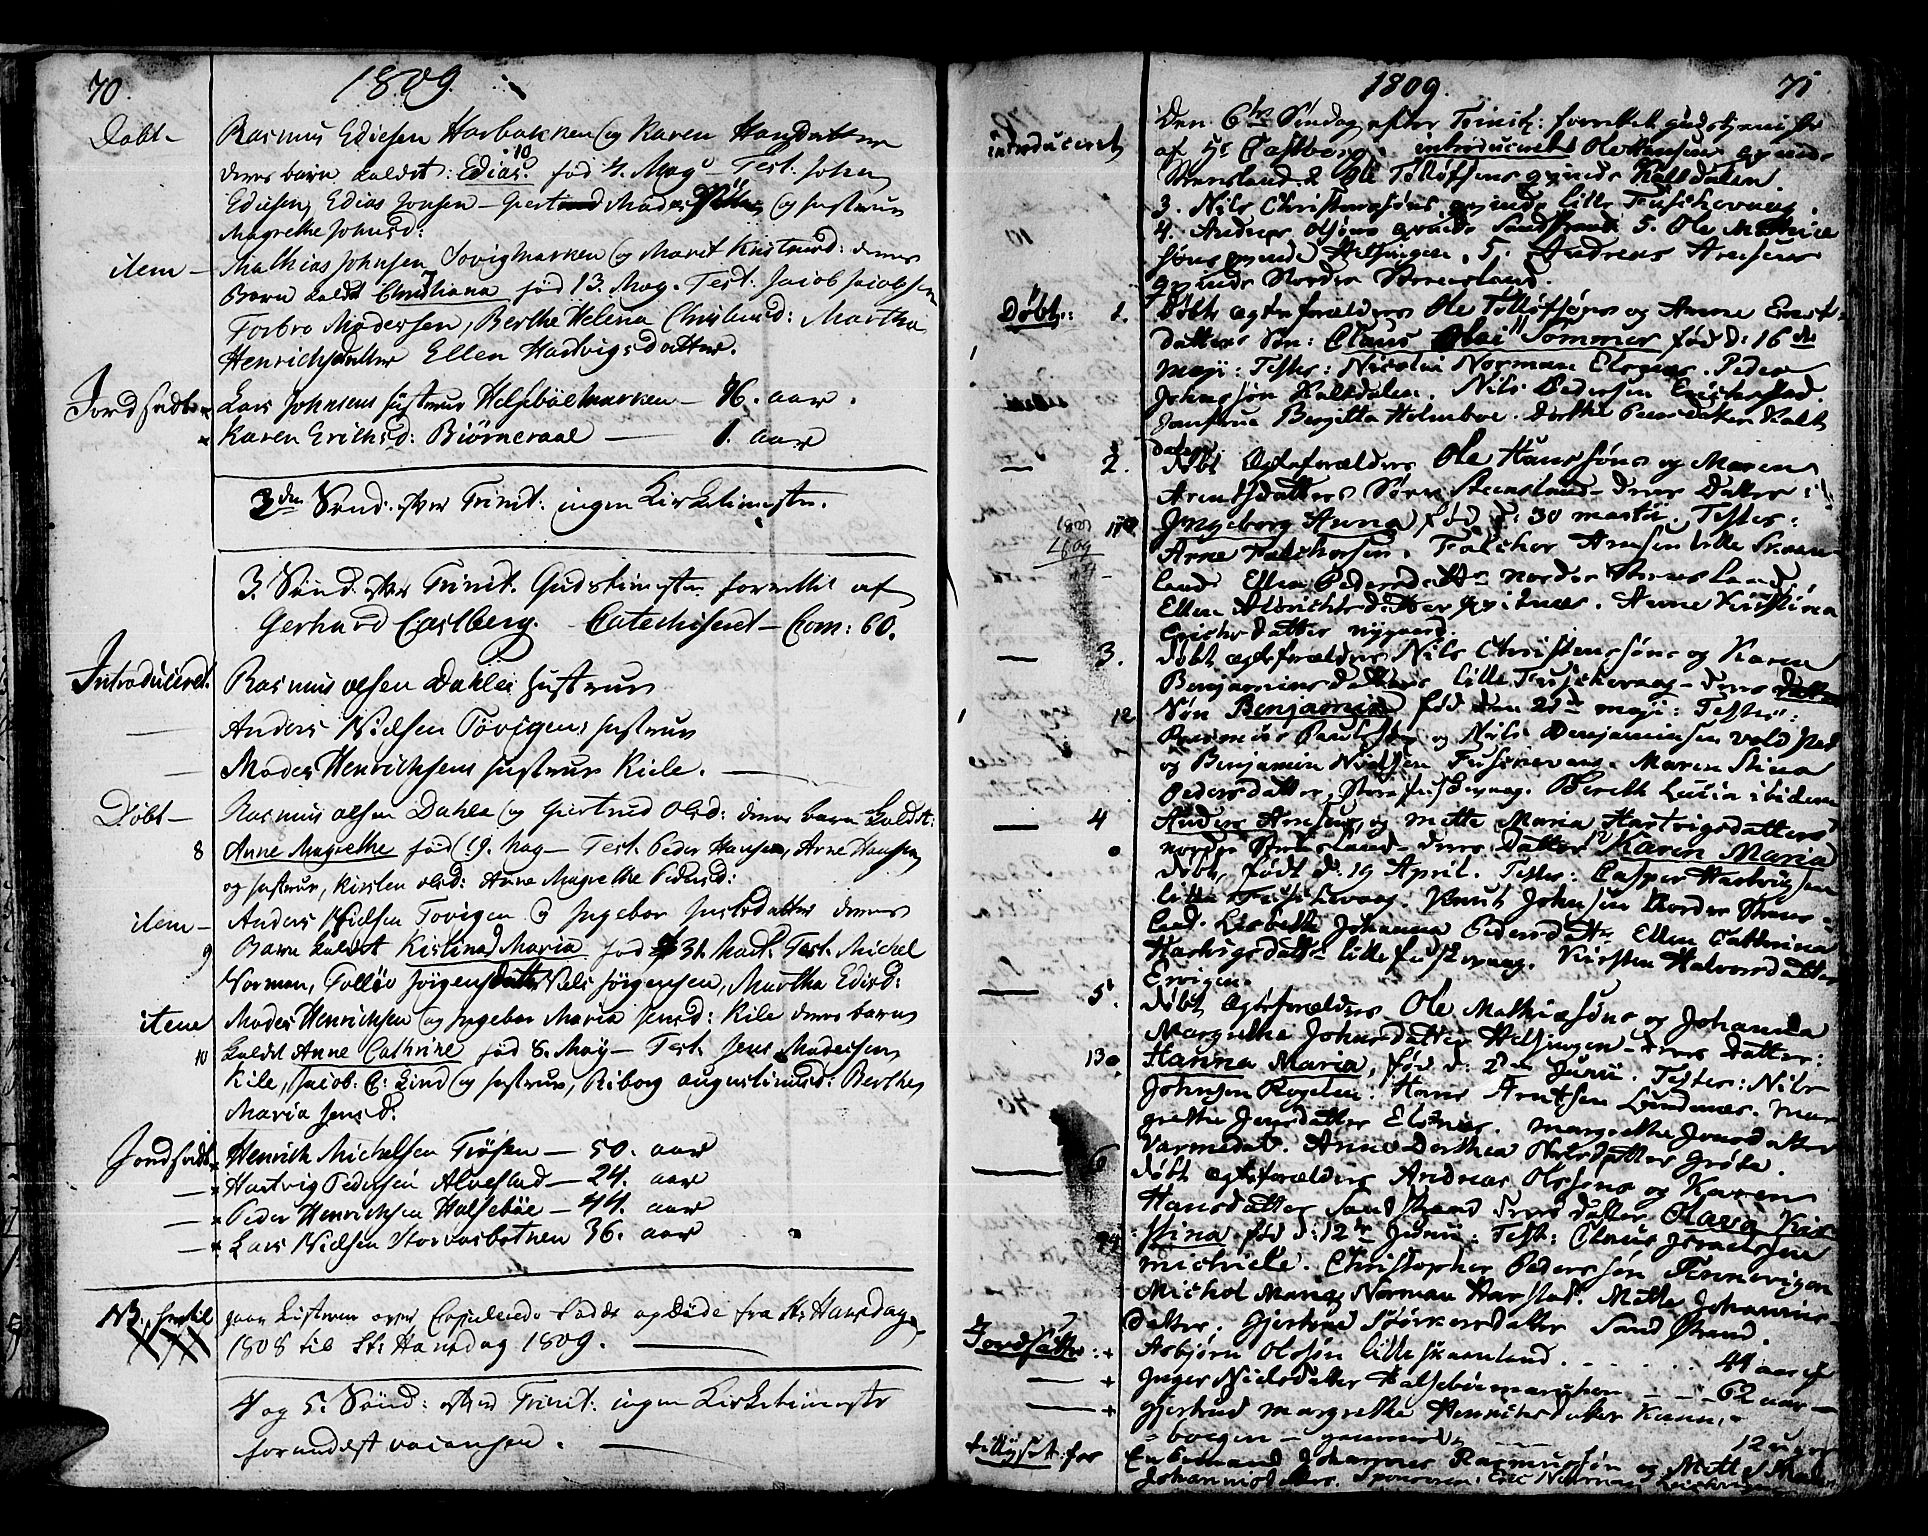 70.
1809.
Døbt –
Rasmus Ediesen Harbakken og Karen Hansdatter
deres barn kaldet: Edias. fød 4. May – Test. John
10
Ediesen, Edias Jonsen – Giertrud Mads og hustrue
Magrethe Johnsd:
item –
Mathias Johnsen Sovigmarken og Marit Knutsd: deres
Barn kaldt Christiana fød 13. May. Test. Jacob Jacobsen
7
Torbro Madssen, Berthe Helena Christensd: Martha
Henrichsdatter Ellen Hartvigsdatter.
Jordfæstet
Lars Johnsens hustrue Helsebøemarken – 76. aar.
Karen Erichsd: Biørneraae — 1. aar
2den Sønd: efter Trinit: ingen Kirketieneste.
3. Sønd. efter Trinit. Gudstieneste forrettet af
Gerhard Castberg. Catechiseret – Com: 60.
Introduceret.
Rasmus olsen Dahles hustrue
Anders Nielsen Tøvigens hustrue
Mads Henrichsens hustrue Kiele. —
Døbt –
Rasmus olsen Dahle og Giertrud Olsd: deres barn kaldet:
8
Anne Magrethe fød 19. May – Test. Peder Hansen, Arne Hansen
og hustrue, Kirsten olsd: Anne Magrethe Pedersd:
item –
Anders Nielsen Tovigen og Ingebor Jensdatter deres
9
Barn kaldet Kistina Maria fød 31. Mart. Test. Michel
Norman, Tolløv Jörgens Niels Jörgensen, Martha Edisd:
item
Mads Henrichsen og Ingebor Maria Jensd: Kile deres barn
10
kaldet Anne Cathrine fød 8. May – Test. Jens Madssen
Kile, Jacob: C: Lind og hustrue, Riborg augustinusd: Berthe
Maria Jensd:
Jordfæstet
Henrich Michelsen Trøsen – 50. aar
Hartvig Pedersen Alvestad – 24. aar
Peder Henrichsen Halsebøe – 44. aar
Lars Nielsen Storvasbotnen 36. aar
NB. hertil
gaar Listerne over Copulerede Fødde og Døde fra St: Hansdag
1808 til St: Hansdag 1809.
4 og 5. Sønd: efter Trinit: ingen Kirketieneste
formedelst vacansen.
1809.
71
introduceret
Den 6te Søndag efter Trinit: forrettet gudstieniste
af Hr Castberg. introduceret Ole Hansens qvinde
Steensland. 2 Ole Tolløfsens qvinde Kaltdalen.
3. Nils Christensøns qvinde lille Fuskevaag.
4. Andreas Olsøns qvinde Sandstrand. 5. Ole Mathie
søns qvinde Helsingen. 5. Andreas Arnesens
qvinde Nordre Steensland.
Døbt: 1.
Døbt egteforælders Ole Tolløfsøns og Anne Ernst
datters Søn: Claus Olai Sommer fød d: 16de
11
Maji: Testes: Nicolai Norman Elgnes. Peder
Johnsøn Kaltdalen. Nils Pedersen Erichstad.
Jomfrue Birgitta Holmboe. Dorthe Peersdatter Kalt
dalen.
— 2.
døbt Egteforælders Ole Hanssøns og Maren
Arentsdatters Søre Steensland – deres Datter:
Ingeborg Anna fød d: 30 martii. Testes:
1809
Arne Falchorsen. Falchor Arnesen lille Skaan
land. Ellen Pedersdatter nordre Steensland,
Ellen Aldrichsdatter Qvitnes. Anne Kistina
Erichsdatter nygaard.
— 3.
døbt egteforælders Nils Christenssøns og Karen
Benjaminsdatters lille Fuskevaag – deres datter
12
Søn Benjamin fød den 21de maji: Testes:
Rasmus og Nils Benjaminsen Vold
og Benjamin Nielsen Fuskevaag. Maren Stina
Pedersdatter Store fuskevaag. Bereth Lucia ibidem
— 4
Anders Arnesens og Mette Maria Hartvigsdatters
nordre Steensland – deres datter Karen Maria
døbt, født d: 19 April. Testes: Casper Hartvigsen
lille Fuskevaag. Knut Johnsen Nordre Steens
land. Lisbeth Johanna Pedersd Ellen Cathrina
Hartvigsdatter lille fuskevaag. Kirsten Halvorsdatter
Ervigen.
— 5.
døbt Egteforælders Ole Mathiesøns og Johanna
Margrethe Johnsdatter Helsingen – deres datter:
13
Hanna Maria, fød d: 2den Junii. Testes: Nils
Johnsen Rogden. Hans Arntsen Lundnæs. Mar
grethe Jensdatter Elgnes. Margrethe Jonsdatter
Varmedal. Anne Dorthea Nilsdatter Grøte.
— 6
døbt egteforælders Andreas Olssøns og Karen
Hansdatter Sandstrand deres datter Olava Kis
14
stina fød d: 12te Junii: Test: Claus Jsraelssen
michiele. Christopher Pederssøn Tennevigen
Michol Mang Norman Harstad. Mette Johannes-
datter. Gjertine Størkersdatter Sandstrand.
Jordfæstet:
Asbjørn Olssøn lille skaanland. . . . 44 aar
Inger Nielsdatter Halsebøemarchen — — 62 aar –
Gjertrud Margrethe Henrichsdatter Kaan-
bogen – gammel — 12 uger
tillyset for
Enkemand Johannes Rasmussøn og Mette
Johannesdatter. Sponsorer: Eric